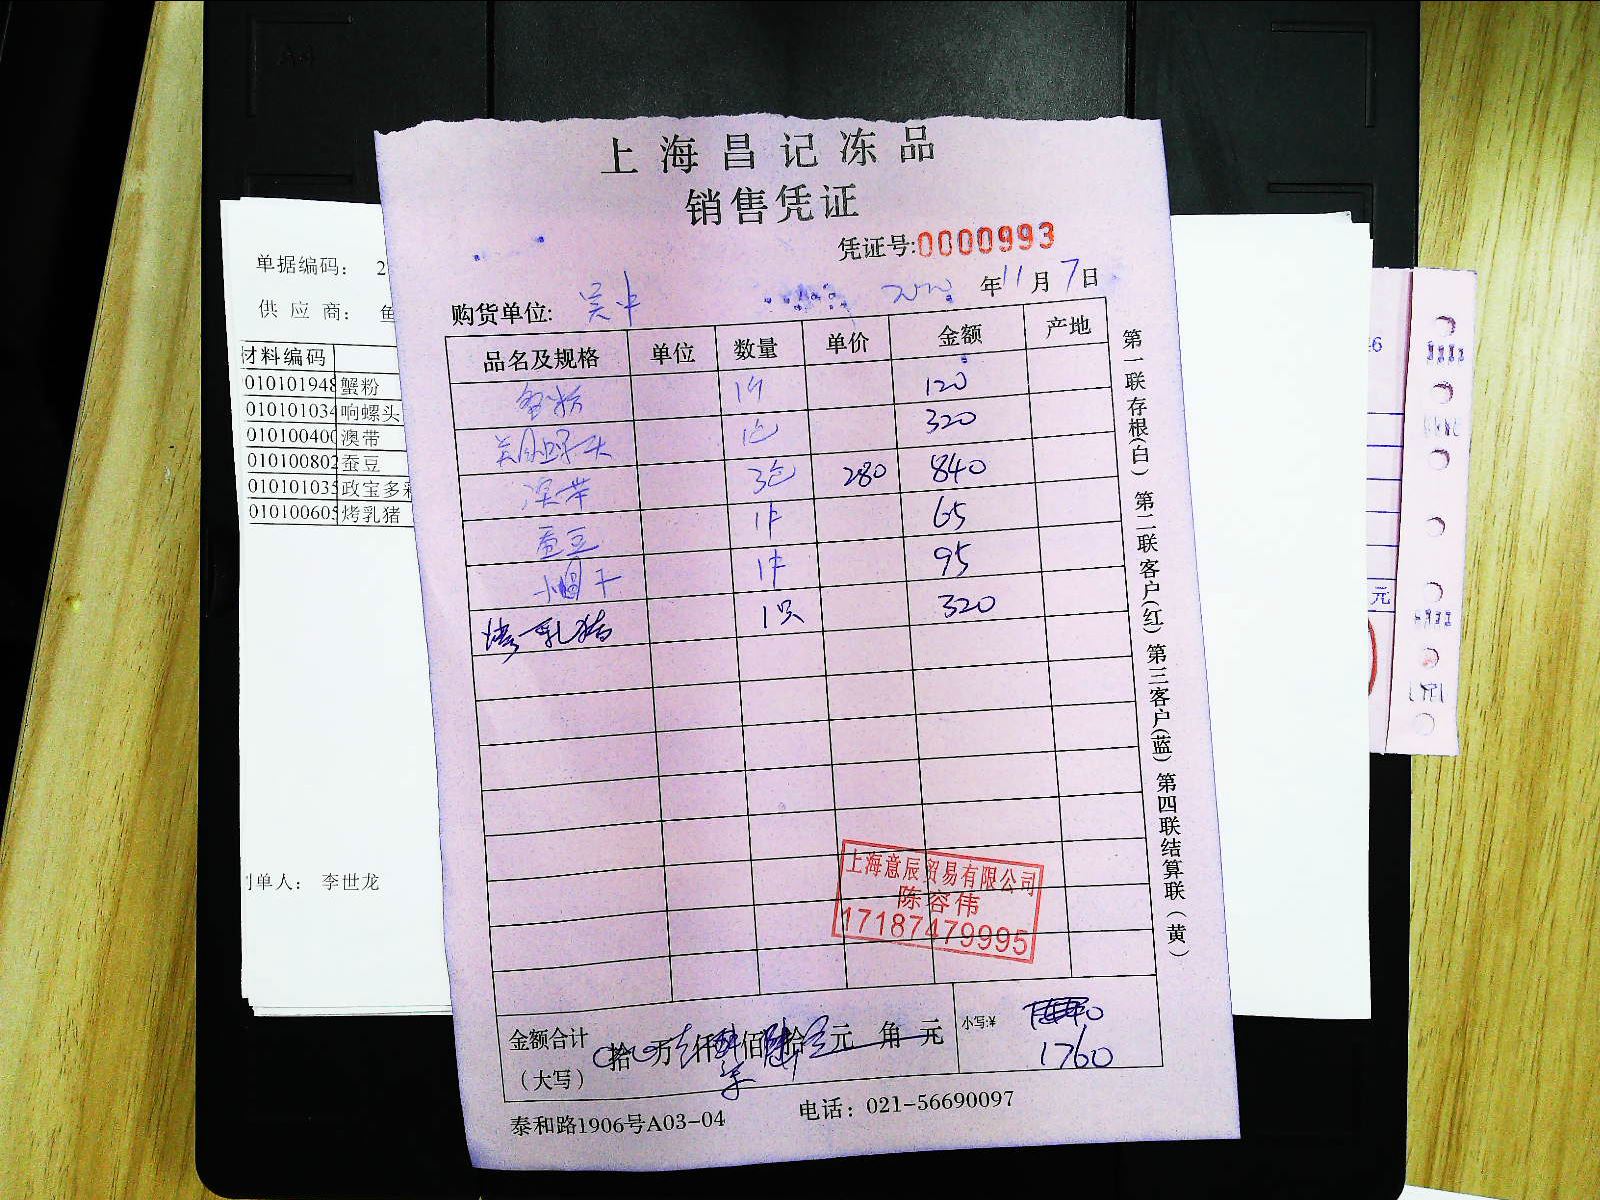 上海昌记冻品
销售凭证
凭证号:0000993
购货单位: 吴中 年11月7日
品名及规格 单位 数量 单价 金额 产地
蟹粉 1斤 120
1包 320
澳带 3包 280 840
蚕豆 1件 65
1件 95
烤乳猪 1只 320
金额合计 拾 万 仟 佰 拾 元 角 元
（大写）
小写:¥ 1760
泰和路1906号A03-04 电话：021-56690097
第一联存根(白) 第二联客户(红) 第三客户(蓝) 第四联结算联（黄）
上海意辰贸易有限公司
陈容伟
17187479995
单据编码： 2
供应商： 鱼
材料编码
010101948 蟹粉
010101034 响螺头
010100400 澳带
010100802 蚕豆
010101035 政宝多
010100605 烤乳猪
单人： 李世龙
元